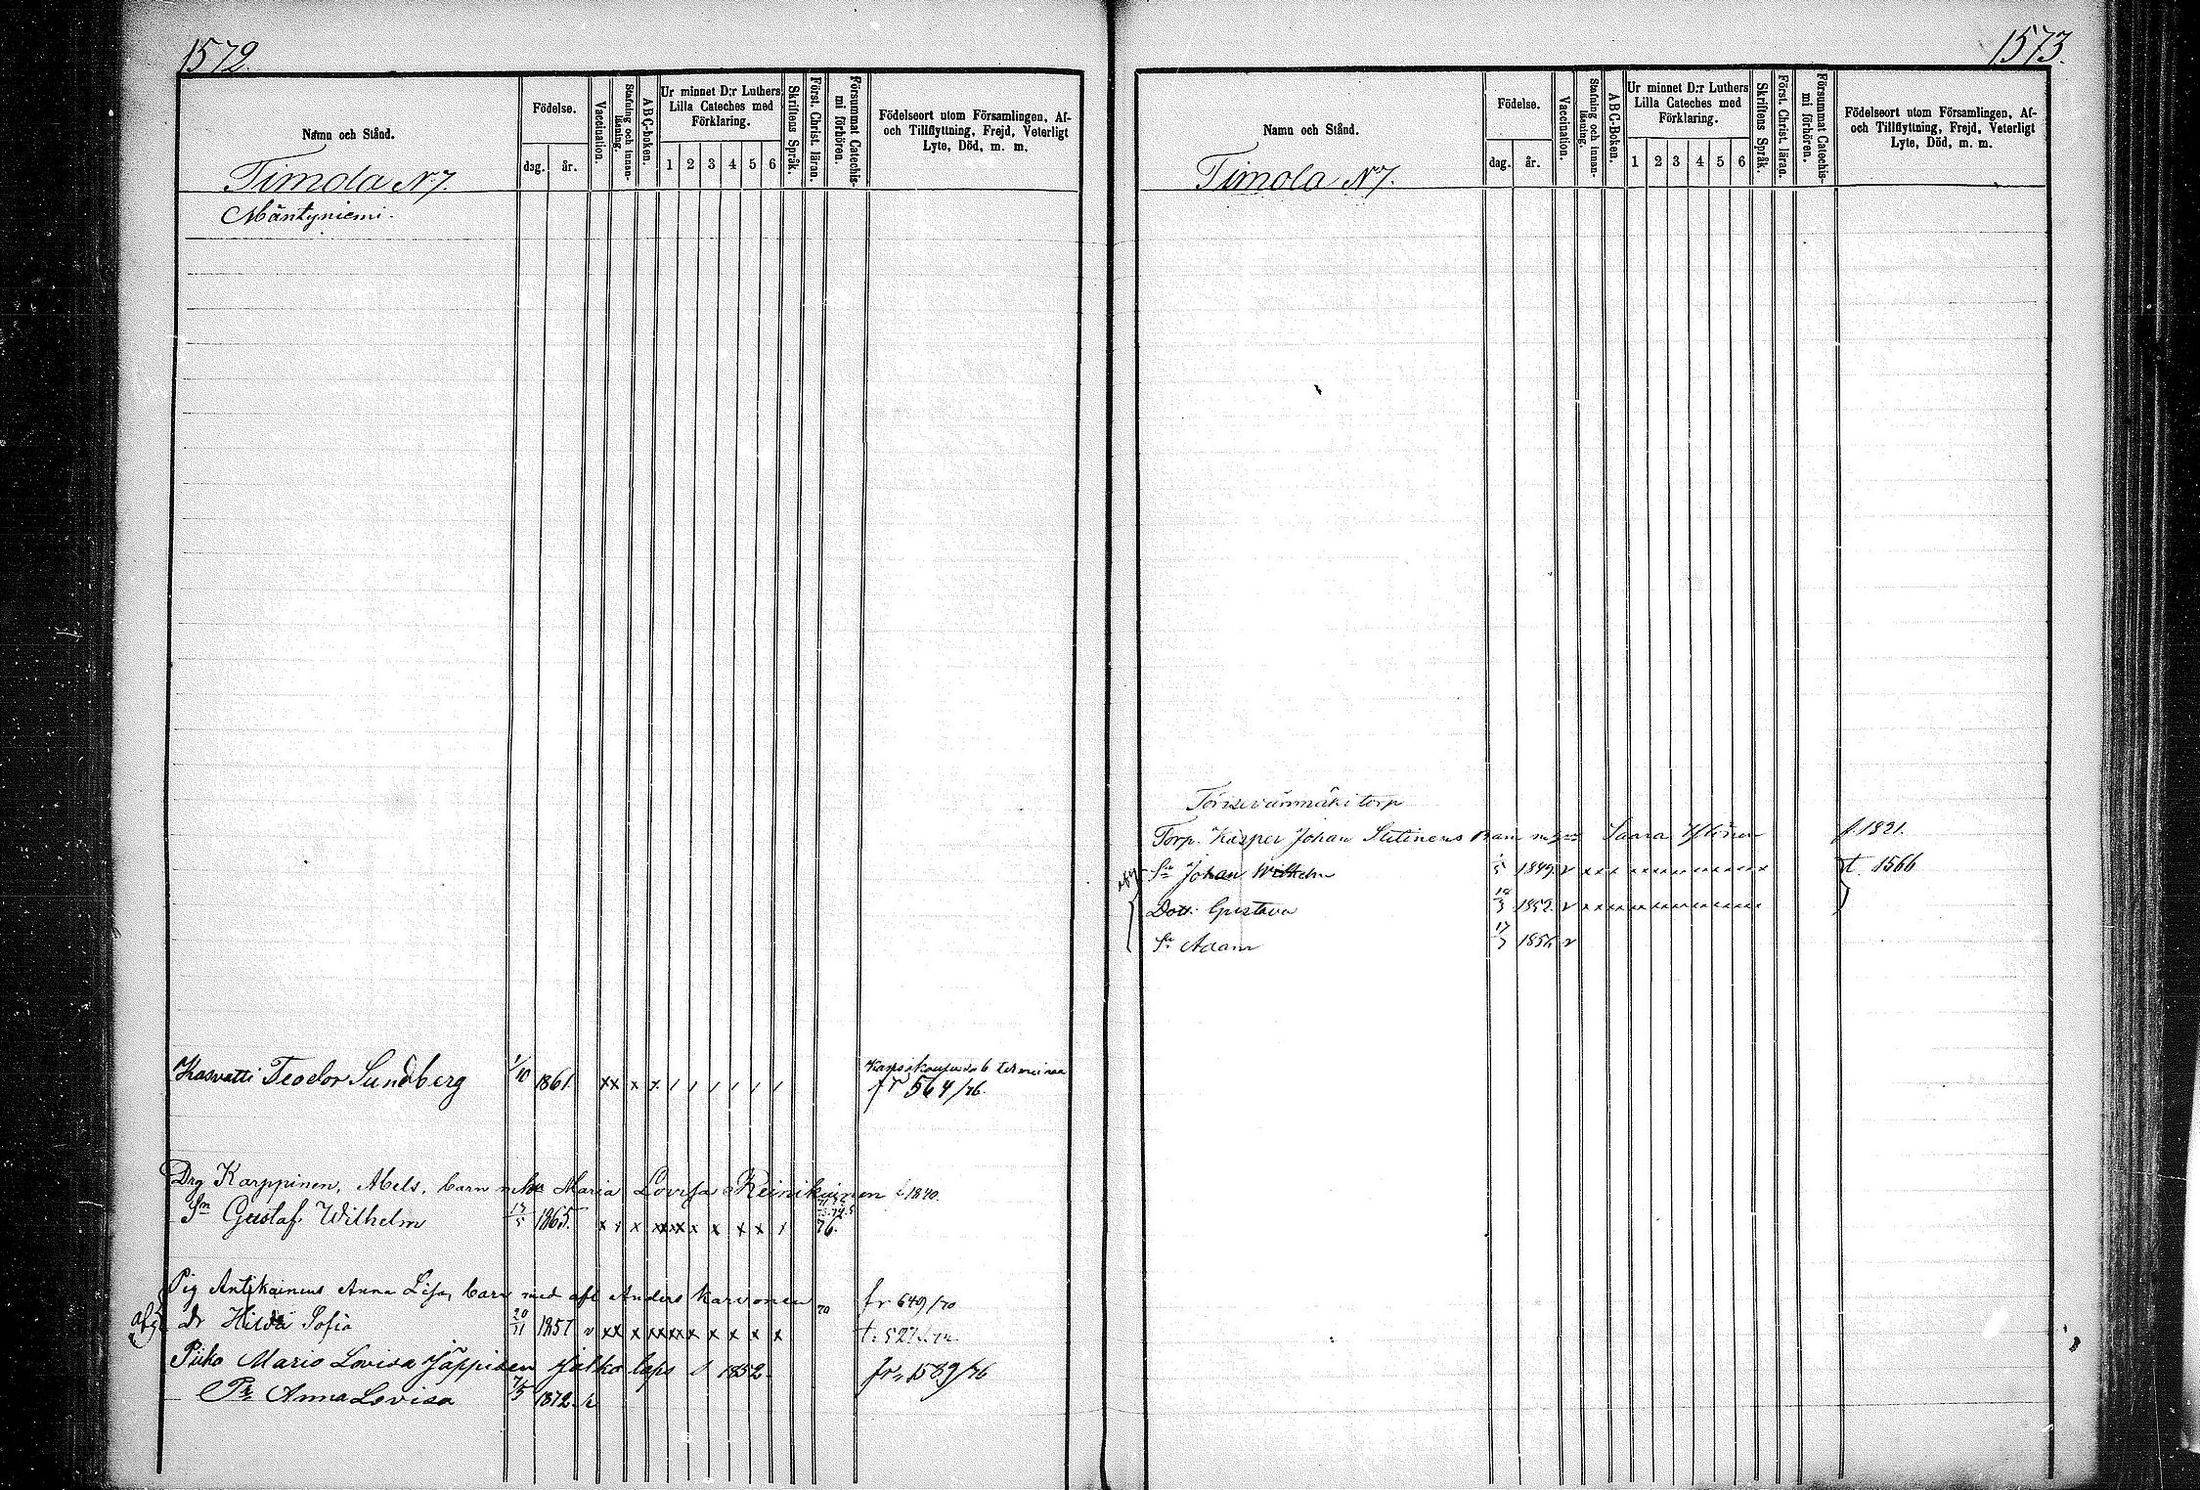 1572.
Namn och Stånd.
Födelse.
dag.
år.
Vaccination.
Stafning och innanläsning.
ABC-boken.
Ur minnet D:r Luthers Lilla Cateches med Förklaring.
1 2 3 4 5 6
Skriftens Språk.
Först. Christ. läran.
Försummat Catechismi förhören.
Födelseort utom Församlingen, Af- och Tillflyttning, Frejd, Veterligt Lyte, Död, m. m.
Timola N 7.
Mäntyniemi.
Kasvatti Teodor Sundberg 1/10 1861. xx x x / / / / / /
fr 564/76.
Drg Karppinen, Abels, barn m. Maria Lovisa Reinikainen f. 1840.
Sn Gustaf Wilhelm 1865. 76.
Pig Antikainens Anna Lisa, barn med afl Anders Karvonen 70 fr 649/70
dr Hilda Sofia 20/11 1857 v xx x xxxx x x x x x
Piika Maria Lovisa Jäppisen jalka laps f 1852. fr. 1589/76
Tr. Anna Lovisa 7/3 1872.
1573.
Namn och Stånd.
Födelse.
dag.
år.
Vaccination.
Stafning och innanläsning.
ABC-Boken.
Ur minnet D:r Luthers Lilla Cateches med Förklaring.
1 2 3 4 5 6
Skriftens Språk.
Först. Christ. läran.
Försummat Catechismi förhören.
Födelseort utom Församlingen, Af- och Tillflyttning, Frejd, Veterligt Lyte, Död, m. m.
Timola N 7.
torp
Torp. Kasper Johan barn Saara f. 1821.
Sn Johan Wilhelm 1849. v t. 1566
Dott. Gustava 18/3 1852. v
Sn Adam 17/7 v